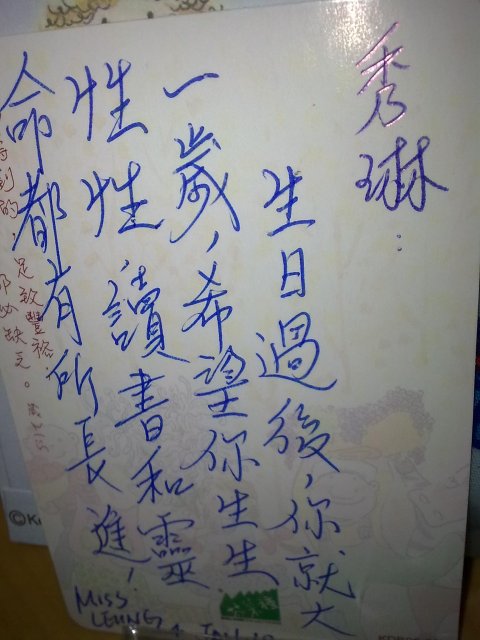 秀琳:
生日過後,你就大
一歲,希望你生生
性性,讀書和靈
命都有所長進!
MISS
LEUNG
足致豐裕
必缺乏。